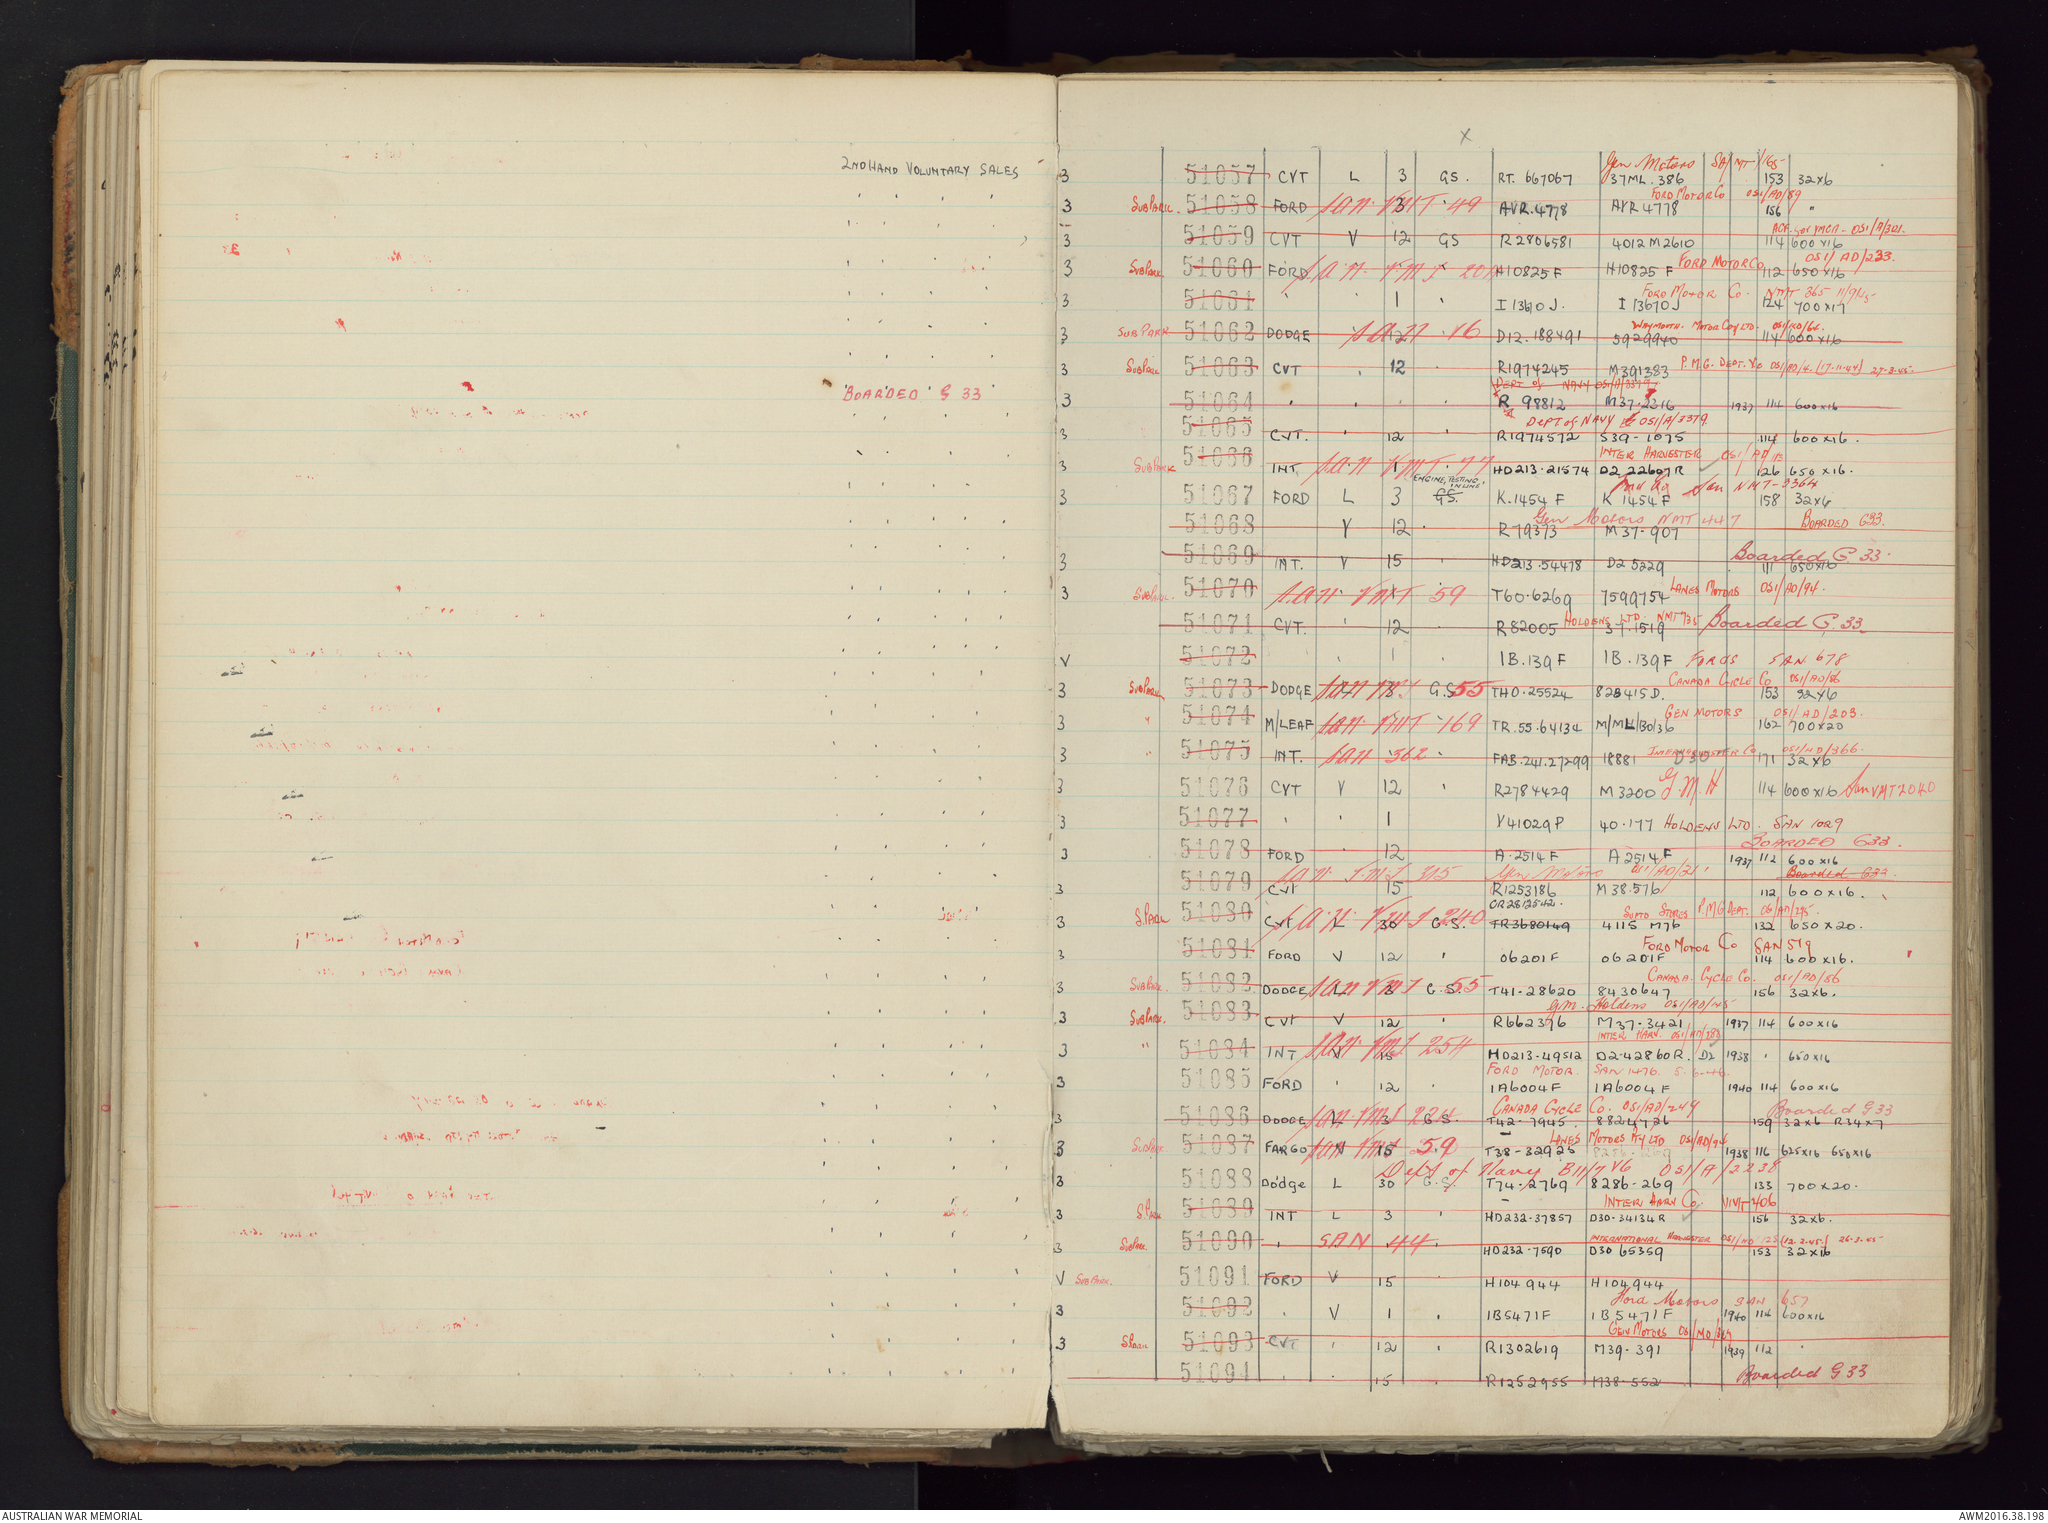 2ND HAND VOLUNTARY SALES
BOARDED G 33
X
Gen Motors SA/MT/165
3 51057 CVT L 3 GS. RT. 667067 37ML. 386 153 32x6
FORD MOTOR Co OS1/AD/89
3 SUBPARK. 51058 FORD SAN VMT 49 3 AVR.4778 AVR 4778 156 "
OS1/A/301.
3 51059 CVT V 12 GS R2806581 4012 M2610 114 600x16
FORD MOTOR Co OS1/AD/233
3 SUBPARK 51060 FORD H10825F H10825F 112 650x16
FORD MOTOR Co. NMT 365
3 51061 ' ' 1 ' I 1361 0J. I 13670J 124 700x17
WAYMOUTH MOTOR COY LTD. OS1/AD/66.
3 SUBPARK 51062 DODGE SAN 16 12 D12.188491 5929940 114 600x16
P.M.G. DEPT. Vic OS1/AD/4. (17.11.44) 27.3.45
3 SUBPARK 51063 CVT . 12 R1974245 M391383
DEPT of NAVY OS1/A/3379
3 51064 ' . . . R 98812 M37.2316 1937 114 600x16
DEPT of NAVY OS1/A/3379
3 51065 CVT. ' 12 R1974572 S39-1075 114 600x16.
INTER HARVESTER OS1/AD/12
3 SUBPARK 51066 INT. SAN VMT. 77 1 HD213.21574 D2 22607R 126 650x16.
ENGINE, TESTING, IN LINE San NMT-3364
3 51067 FORD L 3 GS. K.1454F K 1454F 158 32x6
Gen Motors NMT 447 BOARDED G33.
51068 V 12 . R79373 M37-907
Boarded G 33.
3 51069 INT. V 15 ' HD213.54478 D2 5229 111 650x16
LANES MOTORS OS1/AD/94.
3 SUBPARK. 51070 SAN VMT 59 T60.6269 7599754
HOLDENS LTD. NMT 735 Boarded G.33
51071 CVT. ' 12 ' R82005 37.1519
V 51072 . 1 ' 1B.139F 1B.139F FORDS SAN 678
CANADA CYCLE Co OS1/AD/86
3 SUBPARK 51073 DODGE SAN VMT 55 3 G.S THO.25524 828415D. 153 32x6
GEN MOTORS OS1/AD/203.
3 " 51074 M/LEAF SAN VMT 169 TR.55.64134 M/ML/BO/36 162 700x20
INTER HARVESTER Co OS1/AD/366.
3 " 51075 INT. SAN 362 FAB.241.27299 18881 D30 171 32x6
3 51076 CVT V 12 ' R2784429 M3200 G.M.H 114 600x16 San VMT 2040
3 51077 ' ' 1 V41029P 40.177 HOLDENS LTD. SAN 1029
BOARDED G33.
3 51078 FORD 12 A.2514F A2514F 1937 112 600x16
SAN VMT 315 Gen Motors Boarded G33.
51079 CVT 15 R1253186 M38.576 112 600x16.
CR2812542. SUPTD STORES P.M.G DEPT. OS1/AD/295.
3 S.PARK 51080 CVT SAN VMT 240 L 30 G.S. TR3680149 4115 M76 132 650x20.
FORD MOTOR Co SAN 519
3 51081 FORD V 12 ' 06201F 06201F 114 600x16.
CANADA CYCLE Co. OS1/AD/86
3 SUBPARK. 51082 DODGE SAN VMT 55 L 3 G.S. T41-28620 8430647 156 32x6.
G.M. Holdens OS1/AD/45
3 SUBPARK. 51083 CVT V 12 ' R662376 M37-3421 1937 114 600x16
INTER HARV. OS1/AD/383
3 " 51084 INT SAN VMT 254 V 15 HD213-49512 D2-42860R. D2 1938 ' 650x16
FORD MOTOR. SAN 1476. 5.6.46
3 51085 FORD ' 12 . 1A6004F 1A6004F 1940 114 600x16
CANADA CYCLE Co. OS1/AD/249 Boarded G33
3 51086 DODGE SAN VMT 224 3 G.S. T42-7945. 8824726 159 32x6 R34x7
LANES MOTORS PTY LTD OS1/AD/94
3 SUBPARK 51087 FARGO SAN VMT 59 V 15 T38-32925 1938 116 625x16 650x16
Dept of Navy B11/7 V6 OS1/A/2238
3 51088 Dodge L 30 G.S. T74-2769 8286-269 133 700x20.
INTER HARV Co. NMT 406
3 S.PARK 51089 INT L 3 ' HD232-37857 D30-34134R 156 32x6.
INTERNATIONAL HARVESTER 26-3-45
3 SUBPARK. 51090 ' SAN 44 HD232-7590 D30 65359 153 32x16
V SUBPARK. 51091 FORD V 15 ' H104944 H104944
Ford Motors SAN 657
3 51092 . V 1 . 1B5471F 1B5471F 1940 114 600x16
GEN MOTORS
3 S.PARK 51093 CVT ' 12 . R1302619 M39-391 1939 112 '
Boarded G33
51094 . . 15 . R1252955 M38-552
AUSTRALIAN WAR MEMORIAL
AWM2016.38.198